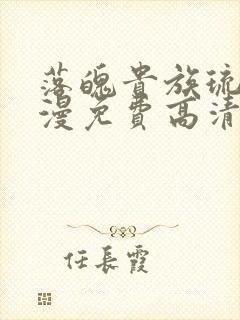 落魄貴族琉
漫免費高清
任長霞